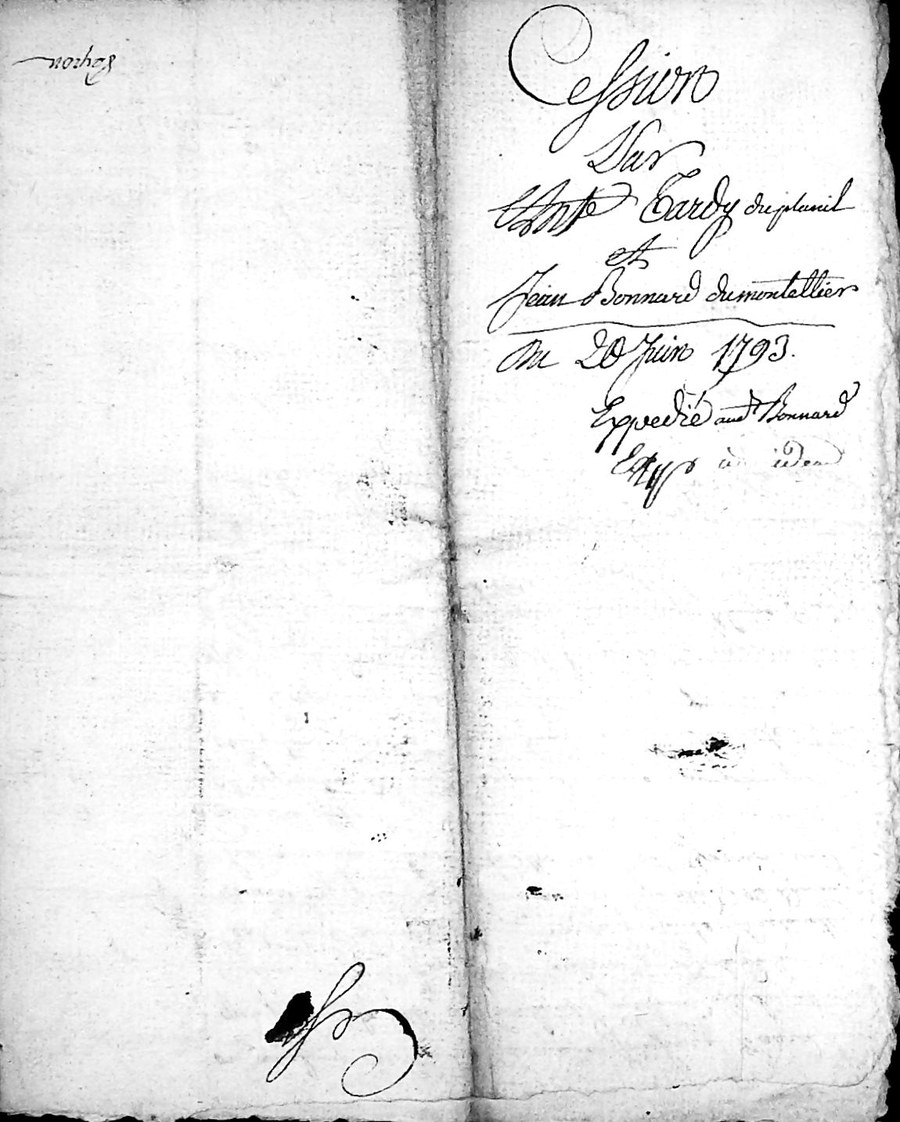 Cession
Par
Ante Tardy du planil
et
Jean Bonnard dumontellier
Du 20 Juin 1793.
Expedié aud Bonnard